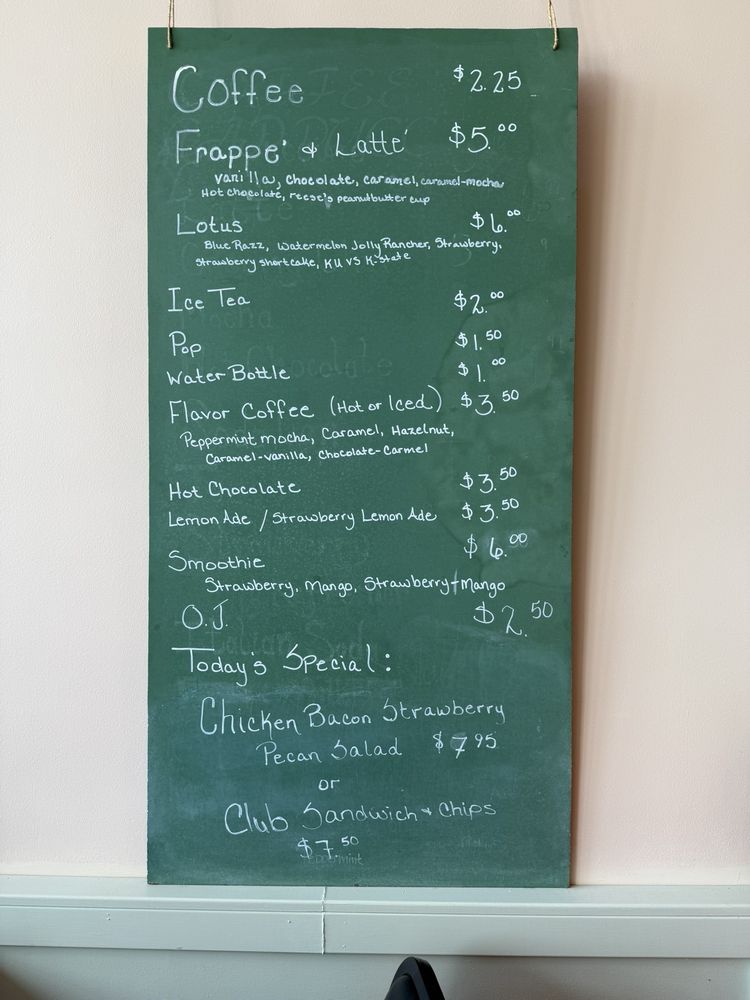 Coffee $2.25
Frappe' & Latte' $5.00
vanilla, chocolate, caramel, caramel-mocha
Hot chocolate, reese's peanutbutter cup
Lotus $6.00
Blue Razz, Watermelon Jolly Rancher, Strawberry,
Strawberry shortcake, KU VS K-State
Ice Tea $2.00
Pop $1.50
Water Bottle $1.00
Flavor Coffee (Hot or Iced) $3.50
Peppermint mocha, Caramel, Hazelnut,
Caramel-vanilla, Chocolate-Carmel
Hot Chocolate $3.50
Lemon Ade / Strawberry Lemon Ade $3.50
Smoothie $6.00
Strawberry, Mango, Strawberry+Mango
O.J. $2.50
Today's Special:
Chicken Bacon Strawberry
Pecan Salad $7.95
or
Club Sandwich & Chips
$7.50